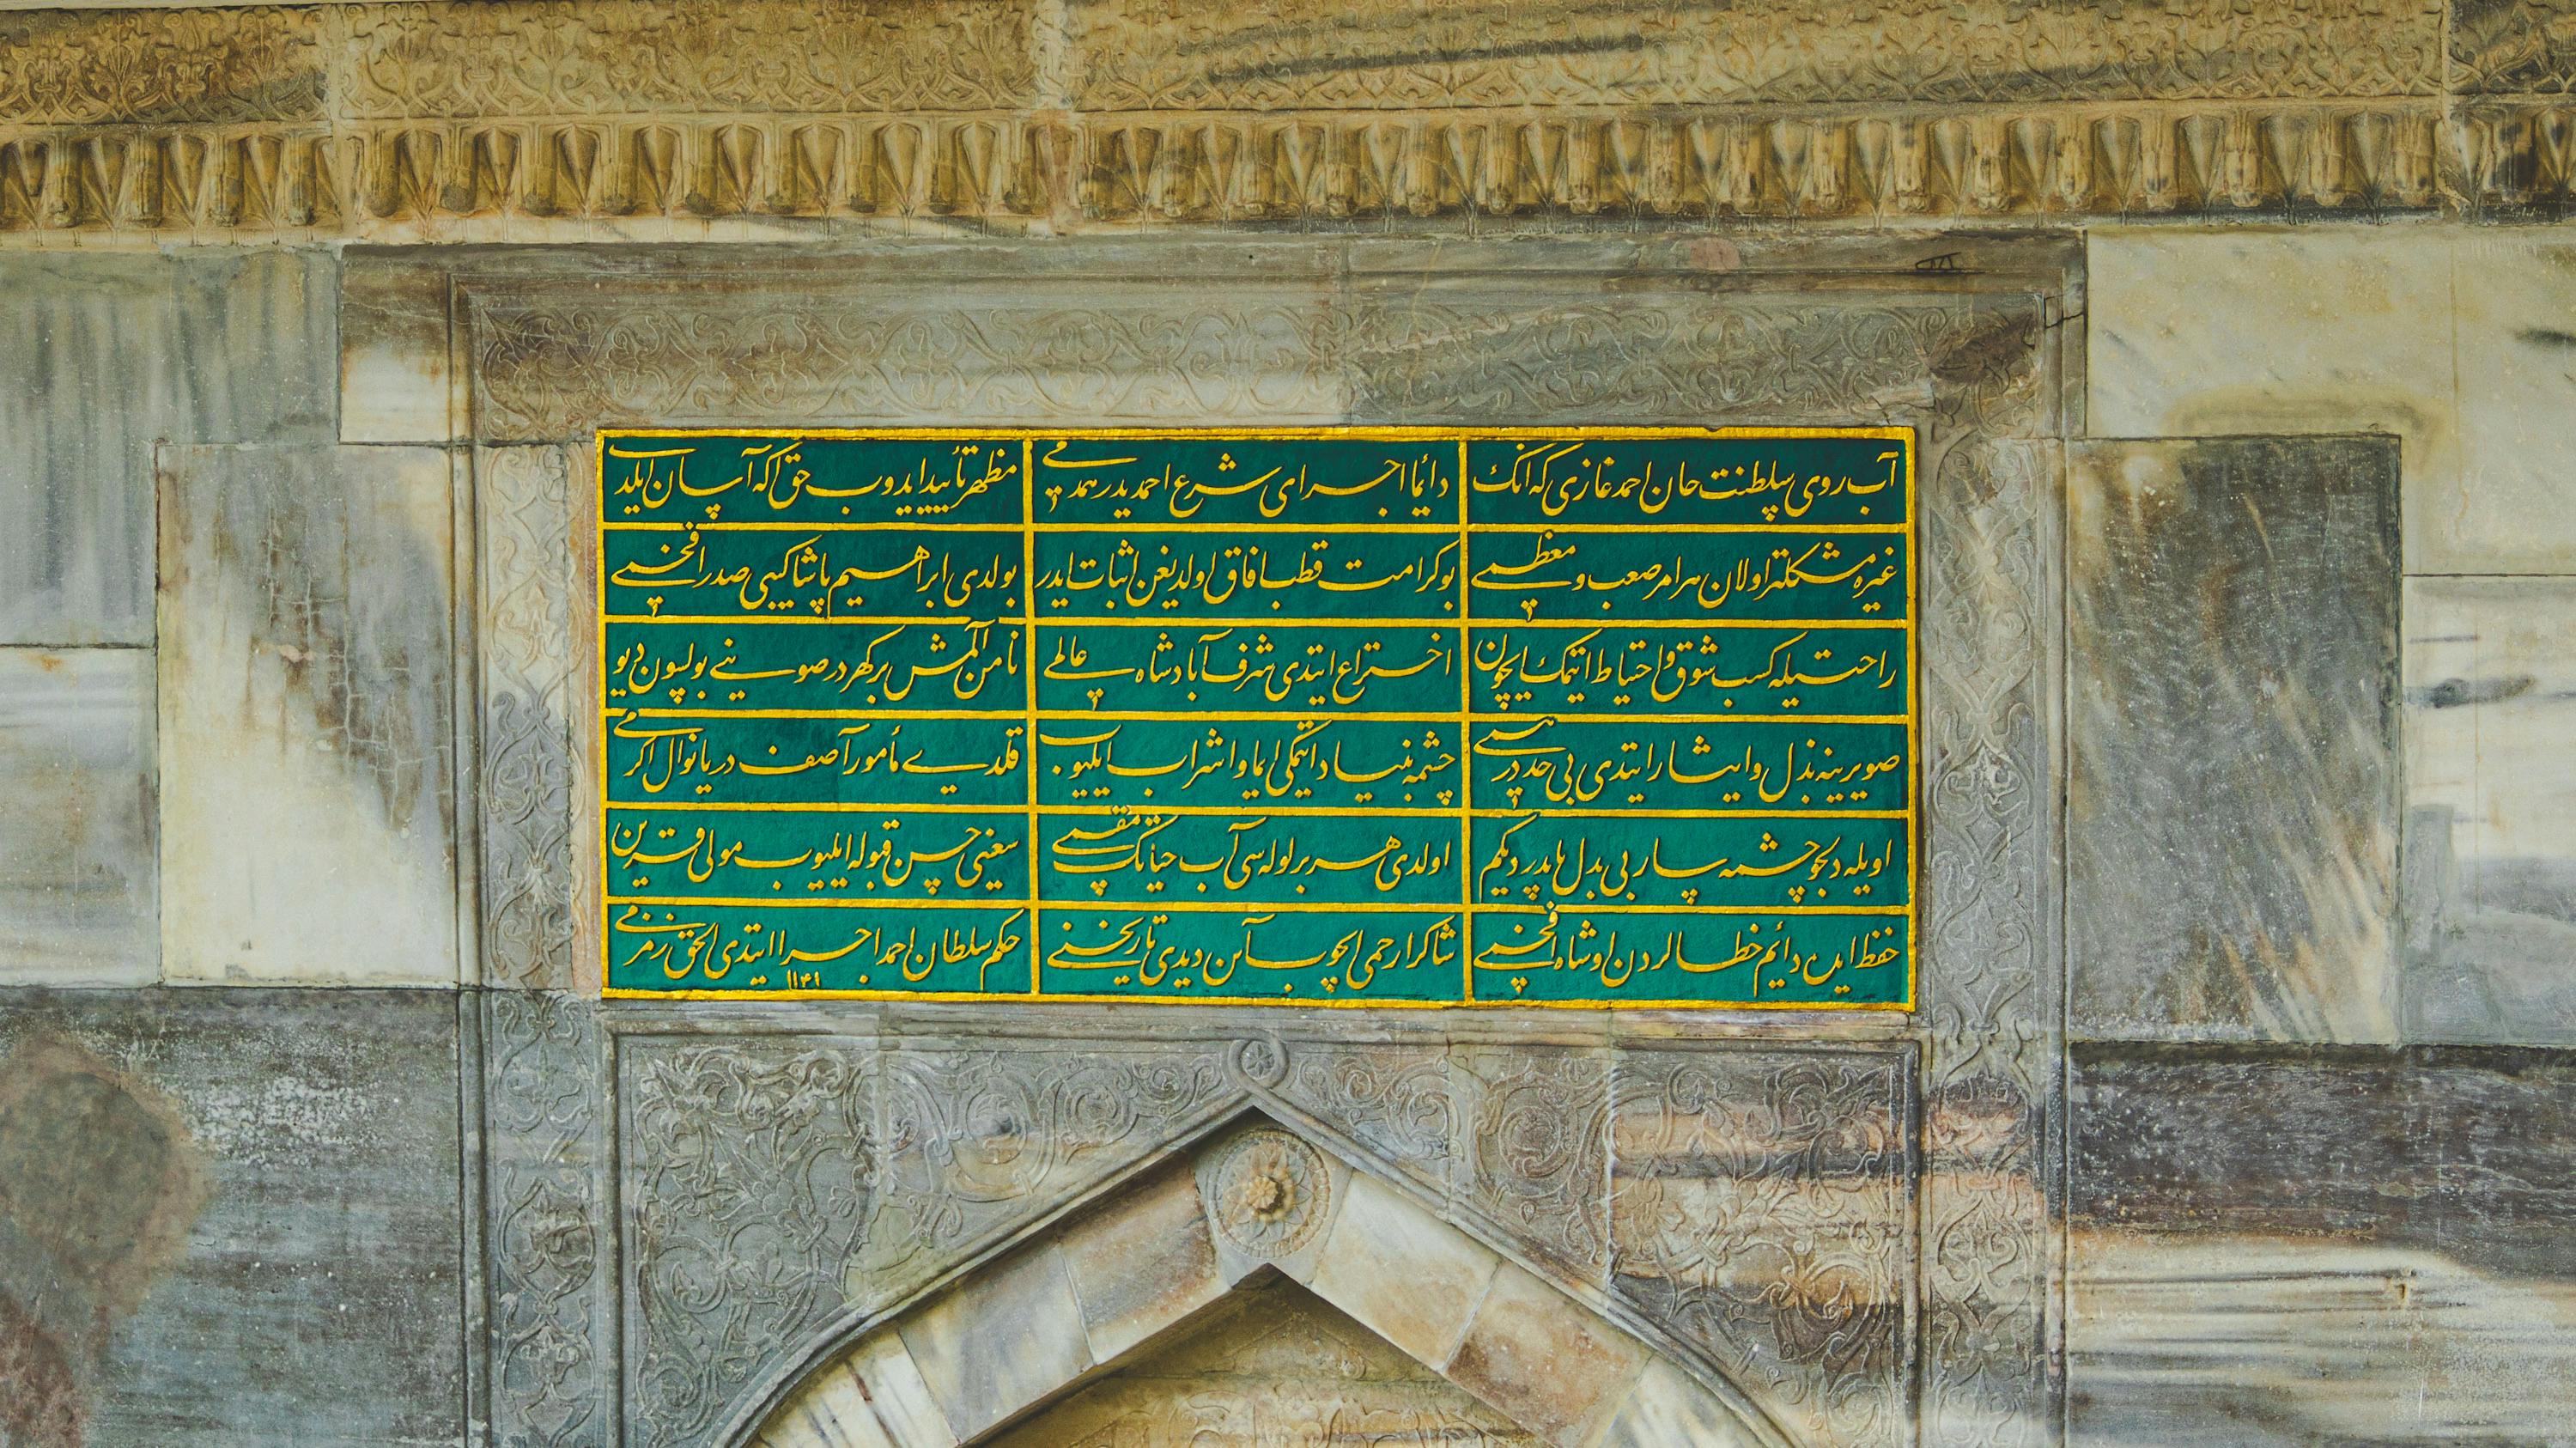 آب روی سلطنت خان احمد غازی که انک
دائما اجرای شرع احمدیدر همدمی
مظهر تأیید ایدوب حق اکه آسان ایلدی
غیره مشکلتر اولان هر امر صعب و معظمی
بو کرامت قطب افاق اولدیغن اثبات ایدر
بولدی ابراهیم پاشا کبی صدر افخمی
راحتیله کسب شوق و احتیاط ایتمک ایچون
اختراع ایتدی شرف آباد شاه عالمی
نامن آلمش بر کهردر صوینی بولسون دیو
قلدی مأمور آصف دریا نوال اکرمی
صویرینه بذل وایثار ایتدی بی حد درهمی
چشمه بنیاد ایتمکی ایما و اشراب ایلیوب
اویله دلجو چشمه سار بی بدل یاپدر دیکم
اولدی هر بر لوله سی آب حیاتک مقسمی
سعینی حسن قبوله ایلیوب مولی قرین
حفظ ایده دائم خطالردن او شاه افخمی
شاکرا رحمی ایچوب آبن دیدی تاریخنی
حکم سلطان احمد اجرا ایتدی الحق زمزمی
١١٤١